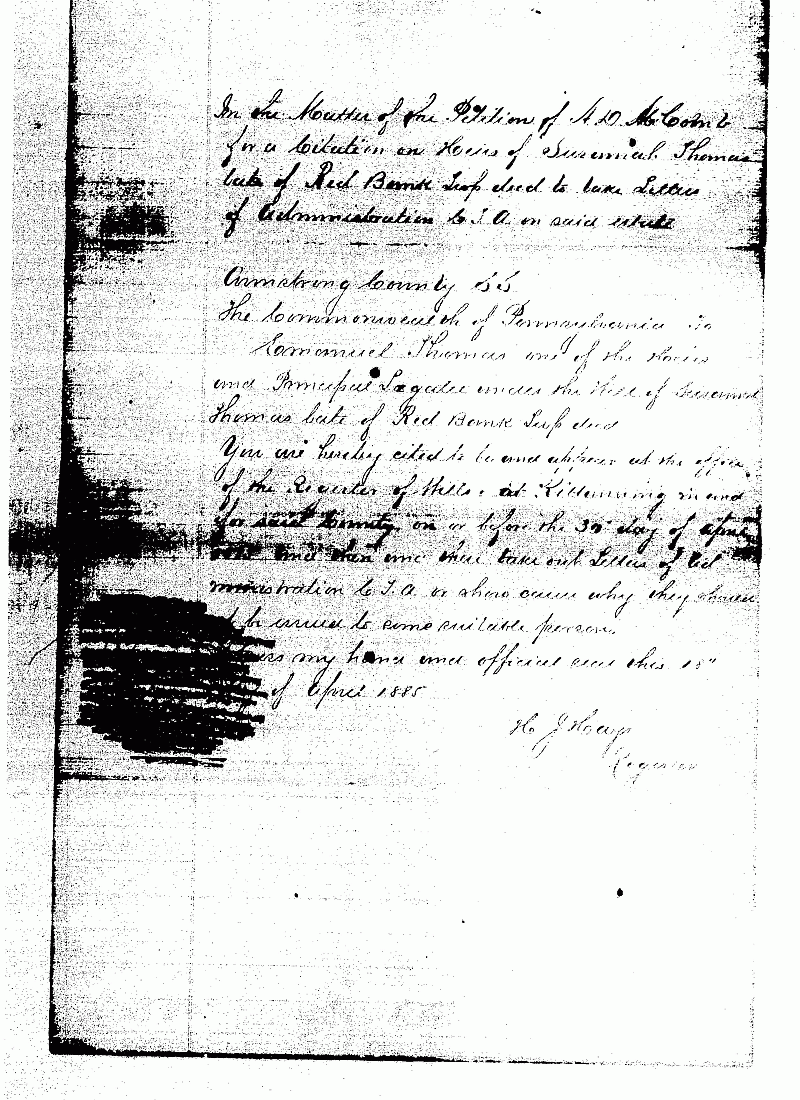 In the Matter of the Petition of A D McComb
for a Citation on Heirs of Susannah Thomas
late of Red Bank Twp decd to take Letters
of Administration C. T. A. on said estate
Armstrong County SS
The Commonwealth of Pennsylvania To
Emanuel Thomas one of the Heirs
and Principal Legatee under the Will of Susannah
Thomas late of Red Bank Twp decd
You are hereby cited to be and appear at the office
of the Register of Wills, at Kittanning in and
for said County, on or before the 30" day of April
and then and there take out Letters of Ad
ministration C. T. A. or show cause why they should
be issued to some suitable person.
my hand and official seal this 18"
of April 1885
H J Hays
Register